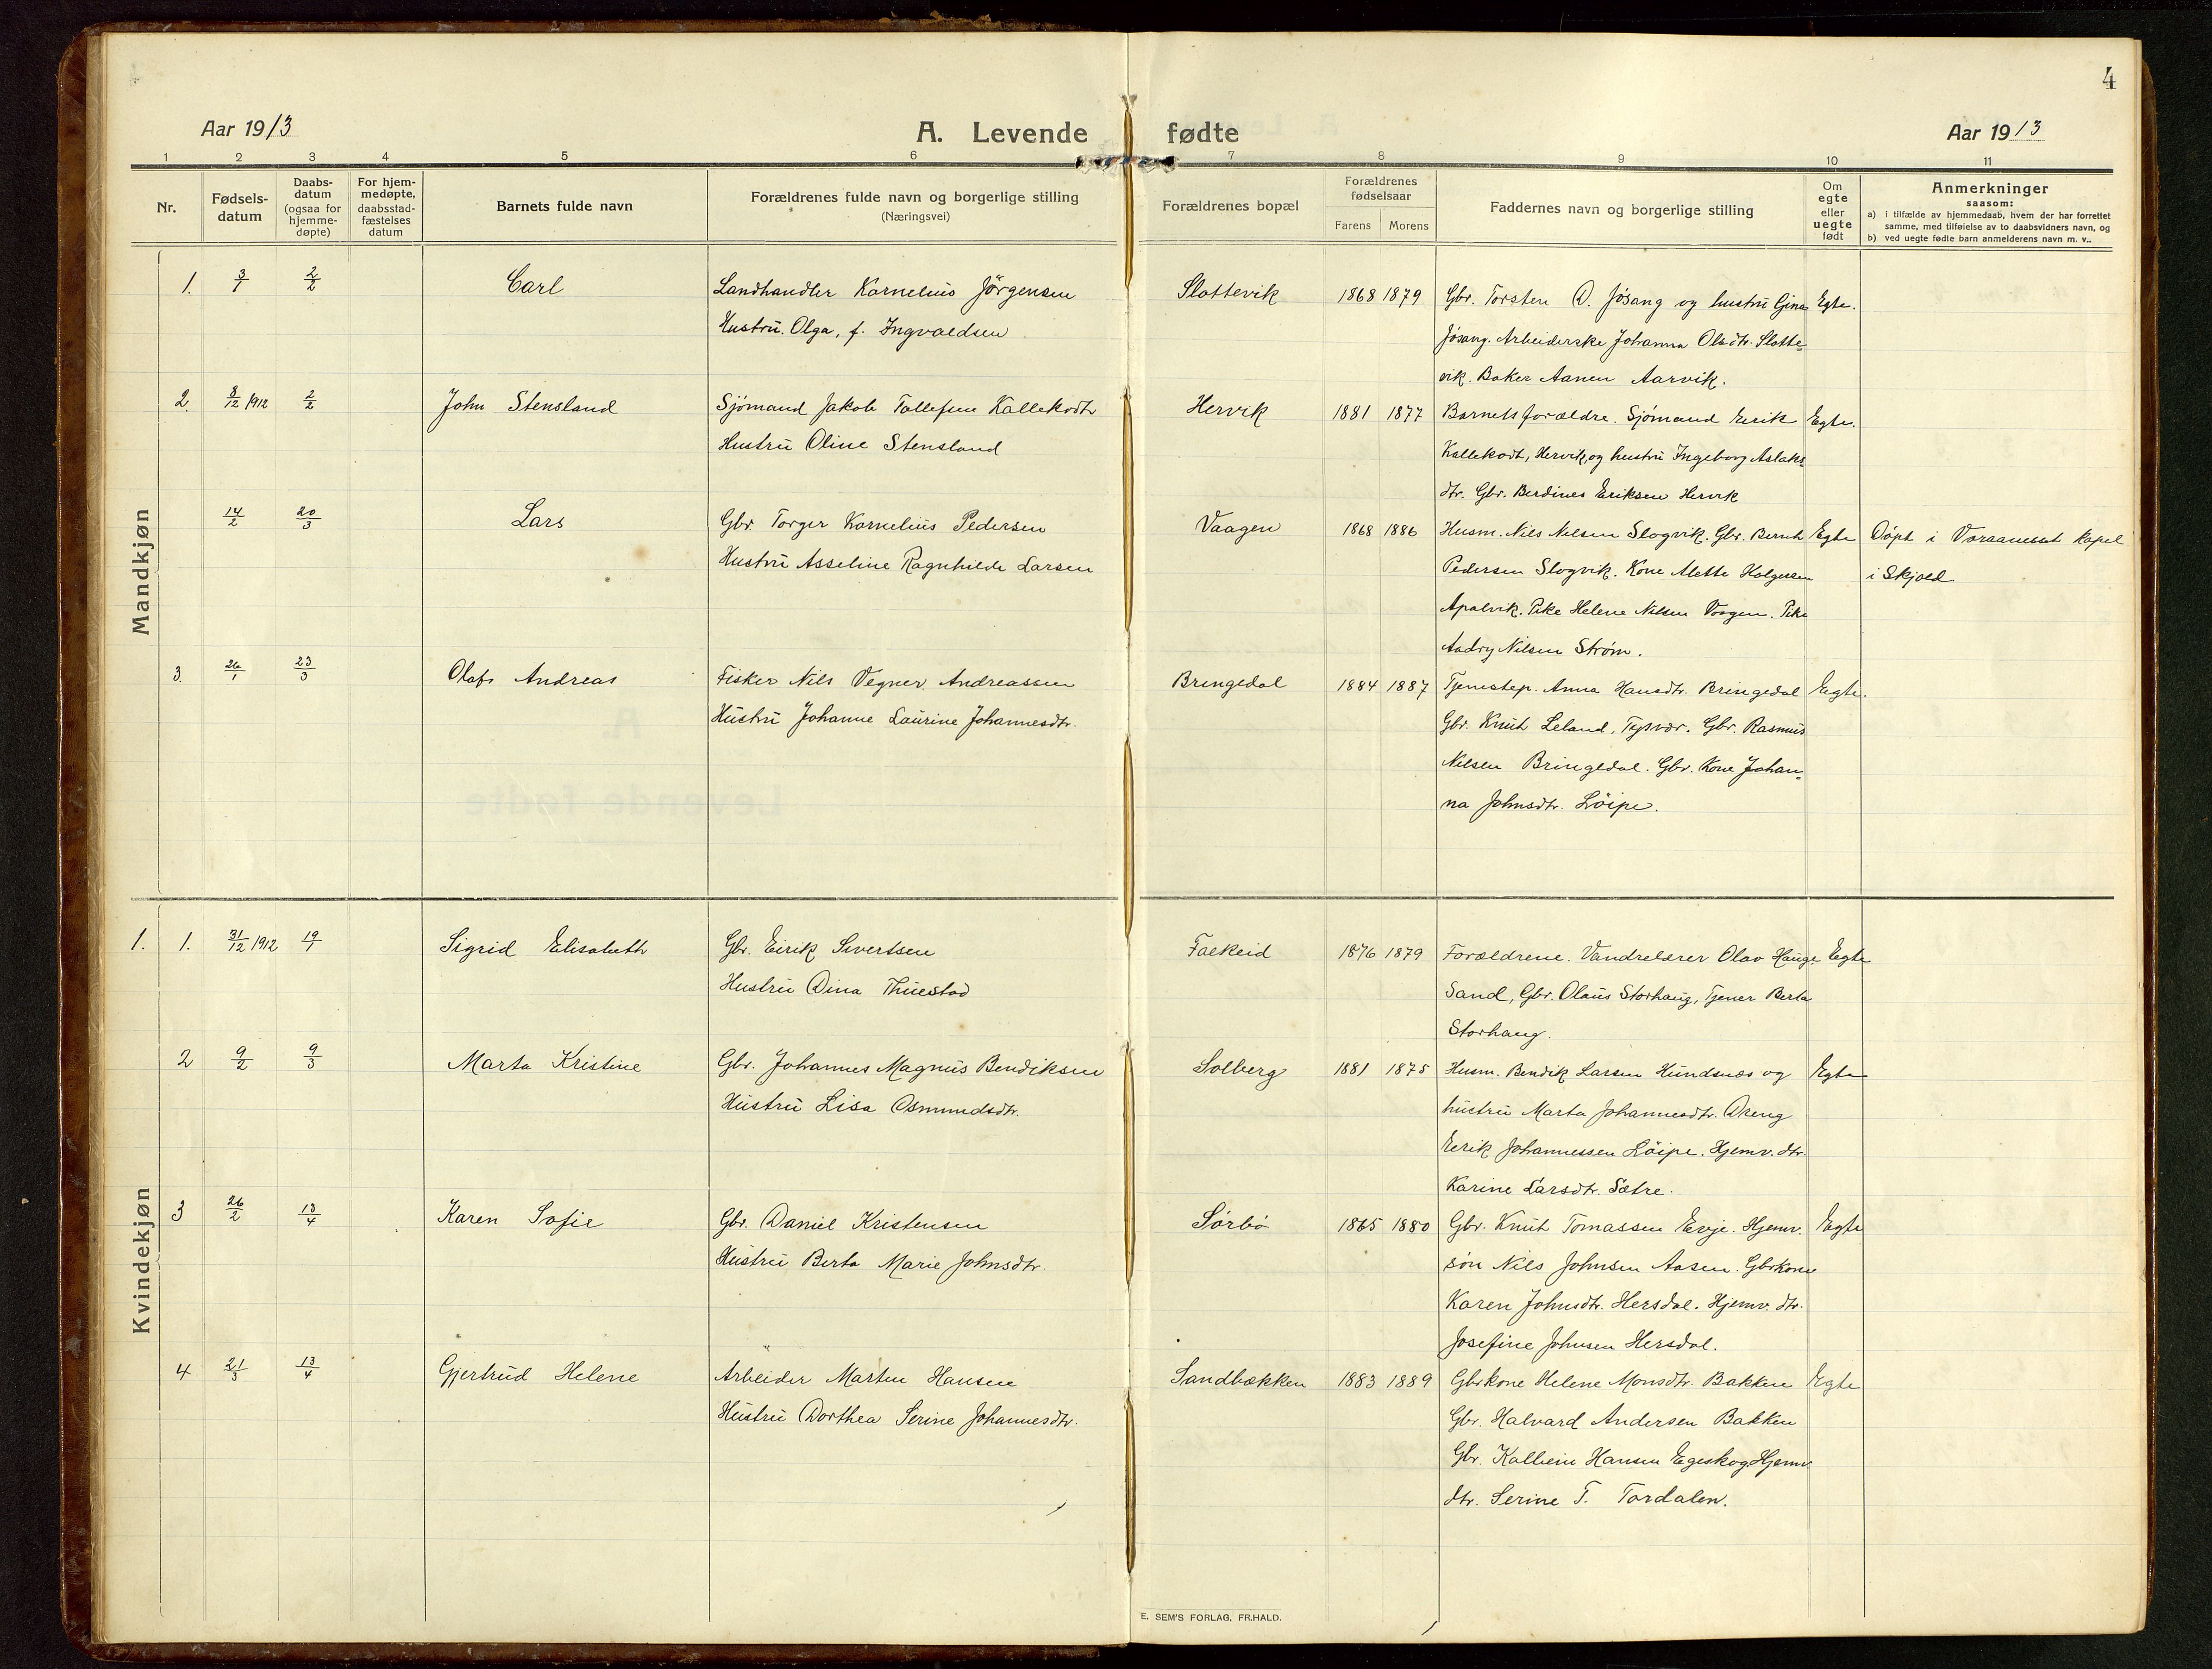 4
Aar 1913
A. Levende fødte
Aar 1913
1 2 3 4 5 6 7 8 9 10 11
Nr.
Fødsels-
datum
Daabs-
datum
(ogsaa for
hjemme-
døpte)
For hjem-
medøpte,
daabsstad-
fæstelses
datum
Barnets fulde navn
Forældrenes fulde navn og borgerlige stilling
(Næringsvei)
Forældrenes bopæl
Forældrenes
fødselsaar
Farens Morens
Faddernes navn og borgerlige stilling
Om
egte
eller
uegte
født
Anmerkninger
saasom:
a) i tilfælde av hjemmedaab, hvem der har forrettet
samme, med tilføielse av to daabsvidners navn, og
b) ved uegte fødte barn anmelderens navn m. v..
Mandkjøn
1. 3/1 2/2 Carl Landhandler Kornelius Jörgensen Slottevik 1868 1879 Gbr. Torsten D. Jösang og hustru Gina Egte.
Hustru Olga, f. Ingvaldsen Jösang. Arbeiderske Johanna Olsdtr. Slotte-
vik. Baker Aanen Aarvik.
2. 8/12 1912 2/2 John Stensland Sjömand Jakob Tollefsen Kallekodt Hervik 1881 1877 Barnets forældre. Sjömand Eerik Egte.
Hustru Oline Stensland Kallekodt, Hervik, og hustru Ingeborg Aslaks-
dtr. Gbr. Berdines Eriksen Hervik
14/2 20/3 Lars Gbr. Torger Kornelius Pedersen Vaagen 1868 1886 Husm. Nils Nelsen Slogvik. Gbr. Bernt Egte Döpt i Voraaneset kapel
Hustru Asseline Ragnhilde Larsen Pedersen Slogvik. Kone Alette Holgersen i Skjold
Apalvik. Pike Helene Nilsen Vaagen. Pike
Nilsen Strøm.
3. 26/1 23/3 Olaf Andreas Fisker Nils Vegner Andreassen Bringedal 1884 1887 Tjenestep. Anna Hansdtr. Bringedal Egte.
Hustru Johanne Laurine Johannesdtr. Gbr. Knut Leland, Tysvær. Gbr. Rasmus
Nilsen Bringedal. Gbr. Kone Johan-
na Johnsdtr. Löipe.
Kvindekjøn
1. 1. 31/12 1912 19/1 Sigrid Elisabeth Gbr. Eirik Sivertsen Falkeid 1876 1879 Forældrene. Vandrelærer Olav Hauge Egte
Hustru Dina Thuestad Sand, Gbr. Olaus Storhaug, Tjener Berta
Storhaug.
2 9/2 9/3 Marta Kristine Gbr. Johannes Magnus Bendiksen Solberg 1881 1875 Husm. Bendik Larsen Hundsnæs og Egte
Hustru Lisa Osmundsdtr. hustru Marta Johannesdtr. Dreng
Eerik Johannessen Löipe. Hjemv. dtr.
Karine Larsdtr. Sætre.
3 26/2 13/4 Karen Sofie Gbr. Daniel Kristensen Sörbö 1865 1880 Gbr. Knut Tomassen Evje. Hjemv. Egte
Hustru Berta Marie Johnsdtr. sön Nils Johnsen Aasen. Gbrkone
Karen Johnsdtr. Hersdal. Hjemv. dtr.
Josefine Johnsen Hersdal.
4 21/3 13/4 Gjertrud Helene Arbeider Martin Hansen Sandbækken 1883 1889 Gbrkone Helene Monsdtr. Bakken Egte
Hustru Dorthea Serine Johannesdtr. Gbr. Halvard Andersen Bakken
Gbr. Kolbein Hansen Egeskog. Hjemv.
dtr. Serine T. Tordalen.
E. SEM'S FORLAG, FR.HALD.